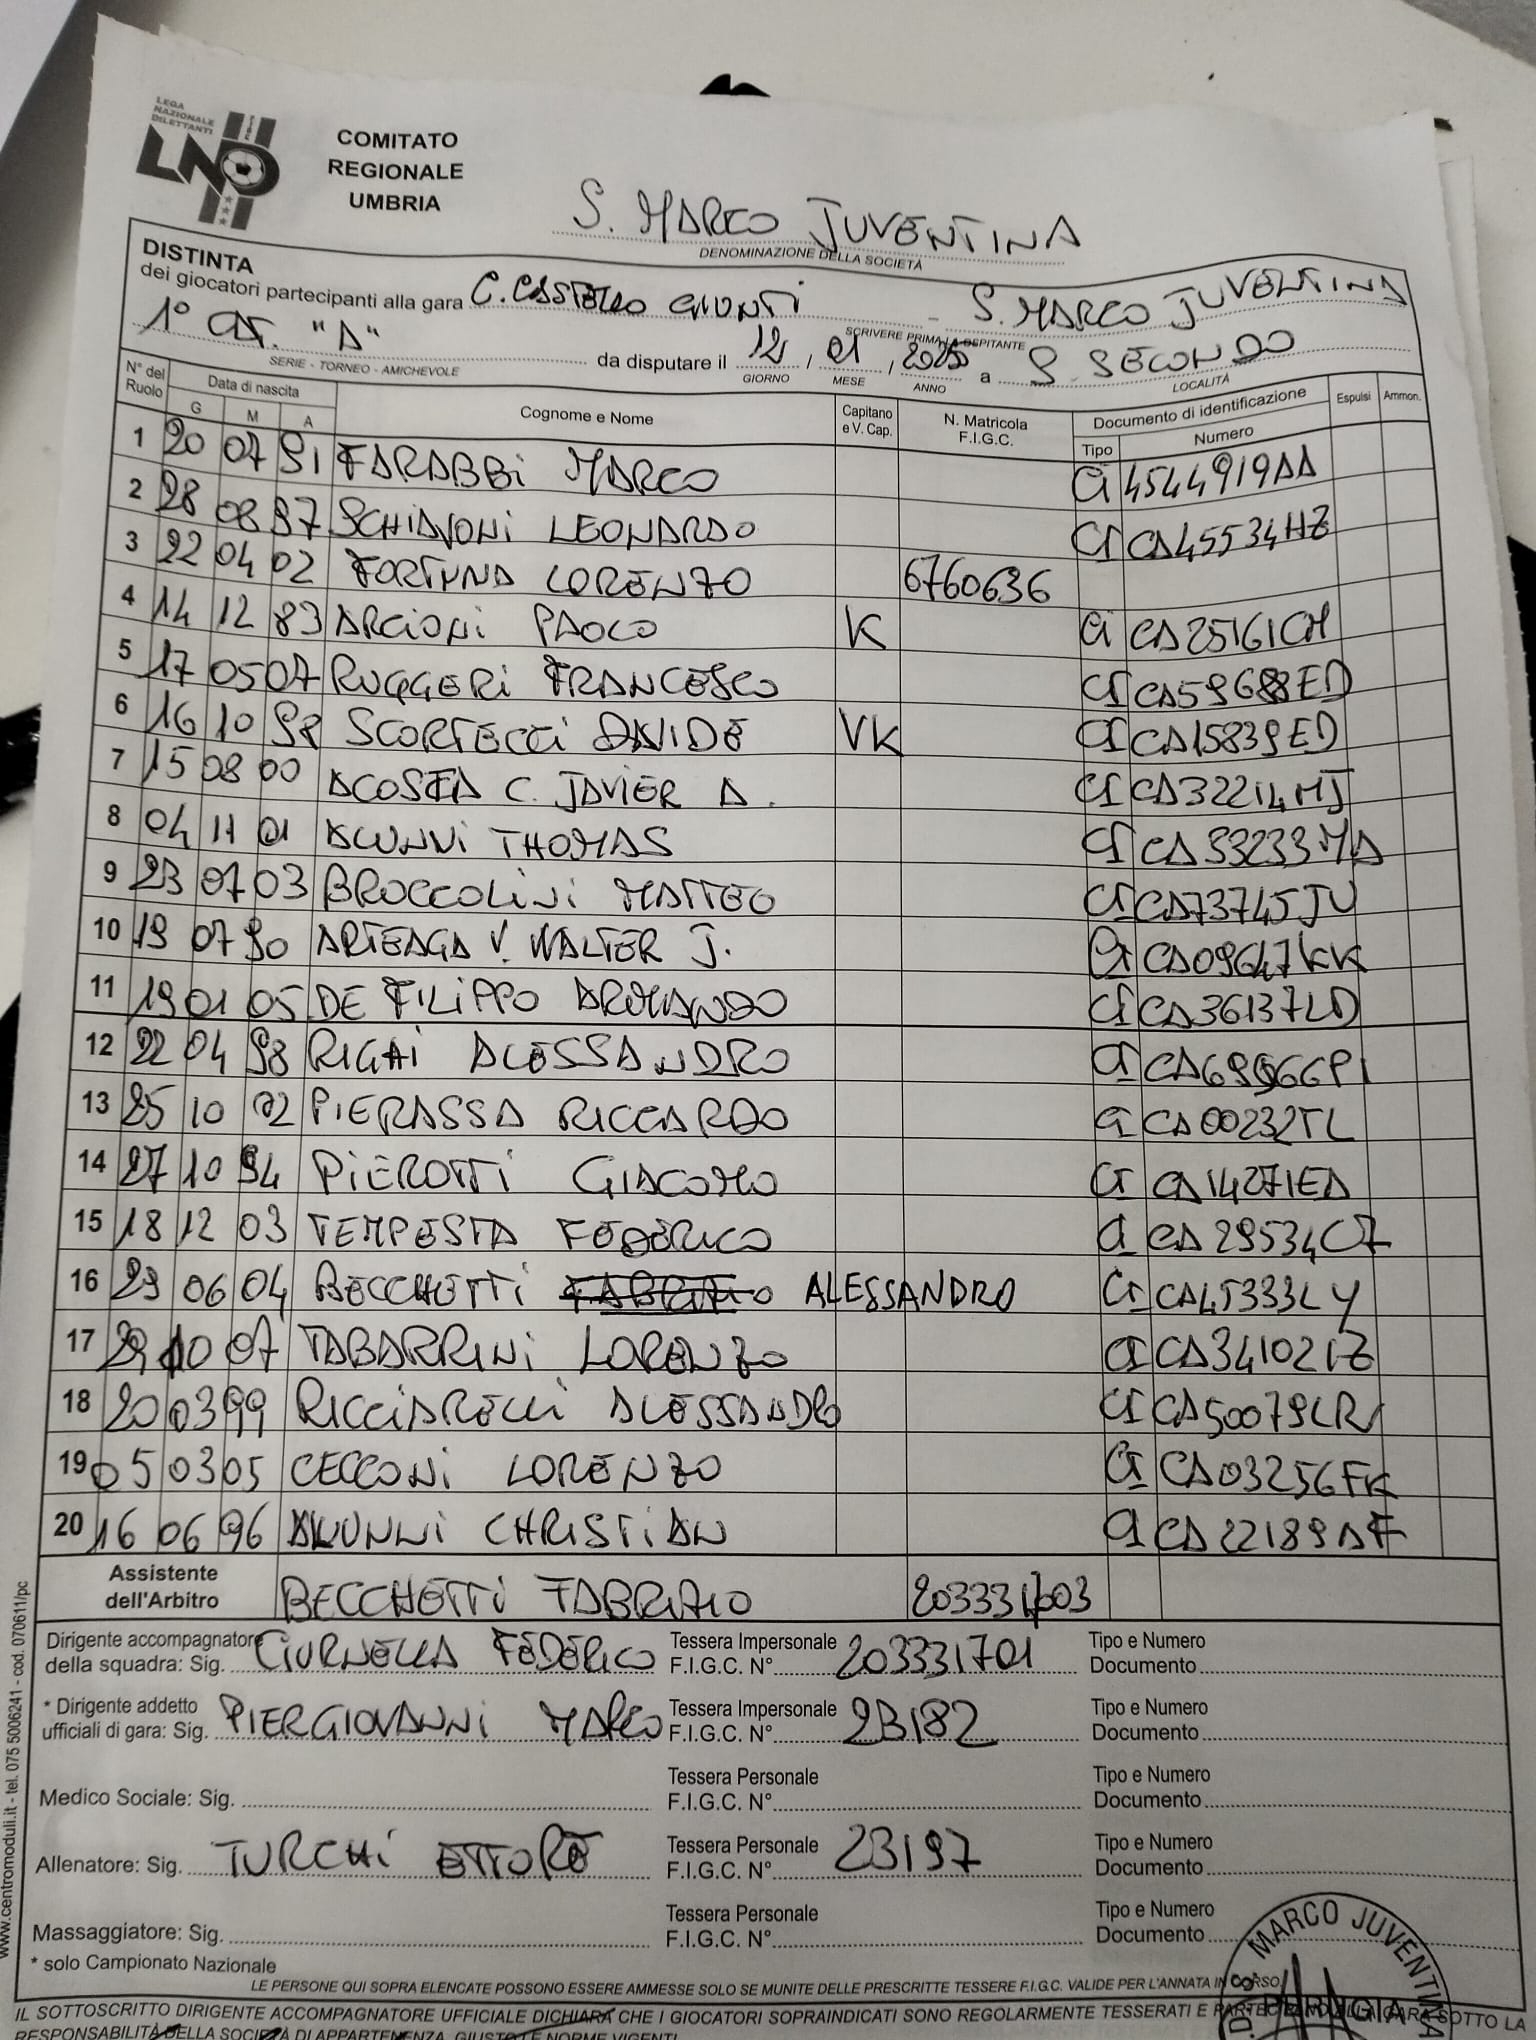 LEGA
NAZIONALE
DILETTANTI
LND
COMITATO
REGIONALE
UMBRIA
S. MARCO JUVENTINA
DENOMINAZIONE DELLA SOCIETÀ
DISTINTA
dei giocatori partecipanti alla gara C. CASTELLO GIUNTI - S. MARCO JUVENTINA
SCRIVERE PRIMA LA OSPITANTE
1° CAT. "A" da disputare il 12 / 01 / 2025 a S. SECONDO
SERIE - TORNEO - AMICHEVOLE GIORNO MESE ANNO LOCALITÀ
N° del Ruolo Data di nascita G M A Cognome e Nome Capitano e V. Cap. N. Matricola F.I.G.C. Documento di identificazione Tipo Numero Espulsi Ammon.
1 20 07 91 FARABBI MARCO CI 4544919AA
2 28 08 97 SCHIAVONI LEONARDO CI CA45534HZ
3 22 04 02 FORTUNA LORENZO 6760636
4 14 12 83 ARCIONI PAOLO K CI CA25161CH
5 17 05 07 RUGGERI FRANCESCO CI CA59688ED
6 16 10 98 SCORTECCI DAVIDE VK CI CA15839ED
7 15 08 00 ACOSTA C. JAVIER A. CI CA32214MJ
8 04 11 01 ALUNNI THOMAS CI CA33233MA
9 23 07 03 BROCCOLINI MATTEO CI CA73745JU
10 19 07 90 ARTEAGA V. WALTER J. CI CA09647KK
11 19 01 05 DE FILIPPO ARMANDO CI CA36137LD
12 22 04 98 RIGHI ALESSANDRO CI
13 25 10 02 PIERASSA RICCARDO CI CA00232TL
14 27 10 94 PIEROTTI GIACOMO CI CA14271EA
15 18 12 03 TEMPESTA FEDERICO CI CA29534CZ
16 29 06 04 BECCHETTI ALESSANDRO CI CA45333LY
17 29 10 07 TABARRINI LORENZO CI CA34102IZ
18 20 03 99 RICCIARELLI ALESSANDRO CI CA50079LR
19 05 03 05 CECCONI LORENZO CI CA03256FK
20 16 06 96 ALUNNI CHRISTIAN CI CA22189AF
Assistente dell'Arbitro BECCHETTI FABRIZIO 203331703
Dirigente accompagnatore Tessera Impersonale Tipo e Numero
della squadra: Sig. CIURNELLA FEDERICO F.I.G.C. N° 203331701 Documento
* Dirigente addetto Tessera Impersonale Tipo e Numero
ufficiali di gara: Sig. PIERGIOVANNI MARCO F.I.G.C. N° 2B182 Documento
Tessera Personale Tipo e Numero
Medico Sociale: Sig. F.I.G.C. N° Documento
Tessera Personale Tipo e Numero
Allenatore: Sig. TURCHI ETTORE F.I.G.C. N° 23197 Documento
Tessera Personale Tipo e Numero
Massaggiatore: Sig. F.I.G.C. N° Documento
* solo Campionato Nazionale
LE PERSONE QUI SOPRA ELENCATE POSSONO ESSERE AMMESSE SOLO SE MUNITE DELLE PRESCRITTE TESSERE F.I.G.C. VALIDE PER L'ANNATA IN CORSO
IL SOTTOSCRITTO DIRIGENTE ACCOMPAGNATORE UFFICIALE DICHIARA CHE I GIOCATORI SOPRAINDICATI SONO REGOLARMENTE TESSERATI E SOTTO LA
RESPONSABILITÀ DELLA SOCIETÀ DI APPARTENENZA, GIUSTO LE NORME VIGENTI
www.centromoduli.it - tel. 075 5006241 - cod. 070611/pc
MARCO JUVENTINA
PERUGIA